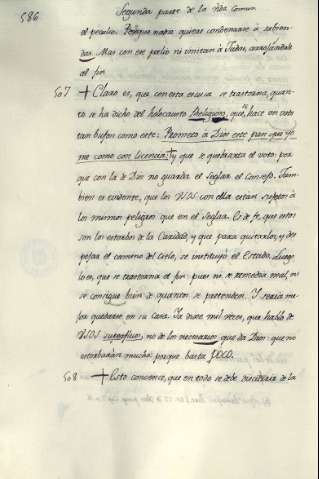 586
Segunda parte de la vida comun.
el peculio. Porque nada quieras condenarte á
dar. Mas con este palio ni imitan á Judas, arrojandole
al fin.
507 + Claro es, que con esta escusa se trastorna, quan-
to se ha dicho del holocausto Religioso, que hace un voto
tan bufon como este: Prometo á Dios este pan que yo
me como con licencia: y que se quebranta el voto: por
que con la de Dios no guarda el seglar el consejo. Tam-
bien es evidente, que los USOS con ella estan sugetos á
los mismos peligros que en el Seglar. Es de fe, que estos
son los estorbos de la Caridad, y que para quitarlos, y des
pejar el camino del Cielo, se instituyó el Estado. Luego
lo es, que se trastorna el fin: pues ni se remedia mal, ni
se consigue bien de quantos se pretenden. Y seria me
jor quedarse en su casa. Ya dixe mil veces, que hablo de
USOS superfluos, no de los necesarios que da Dios: que no
estorbarán mucho: porque basta POCO.
508 + Esto convence, que en todo se debe de la